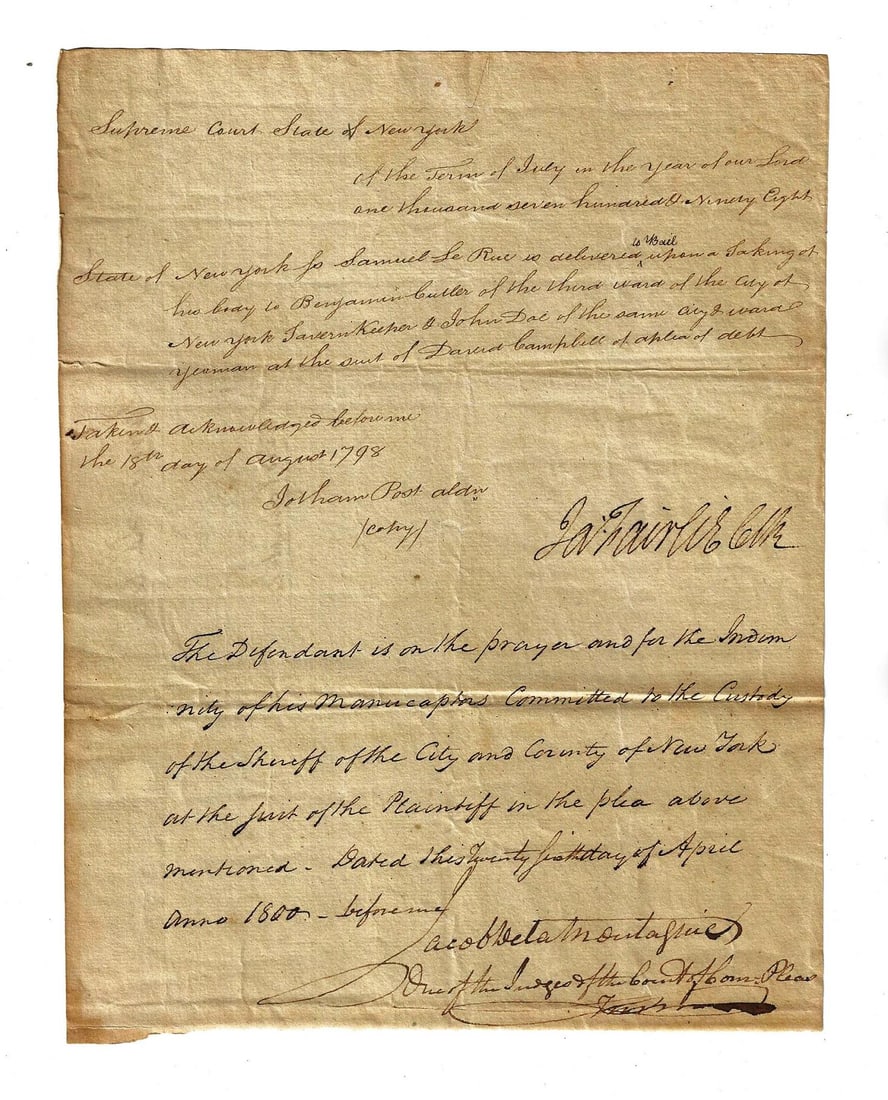 Supreme Court State of New York
of the Term of July in the year of our Lord
one thousand seven hundred & Ninety Eight
to Bail
State of New York ss Samuel Le Rue is delivered ^ upon a Taking of
his body to Benjamin Cutler of the third ward of the City of
New York Tavern Keeper & John Doe of the same City & ward
yeoman at the suit of David Campbell of a plea of debt
Taken & acknowledged before me
the 18th day of August 1798
Jotham Post aldn
(copy)
Ja Fairlie Clk
The Defendant is on the prayer and for the Indem
nity of his Manucaptors Committed to the Custody
of the Sheriff of the City and County of New York
at the suit of the Plaintiff in the plea above
mentioned - Dated this Twenty sixth day of April
Anno 1800 - before me
Jacob Delamontagnie
One of the Judges of the Court of Com: Pleas